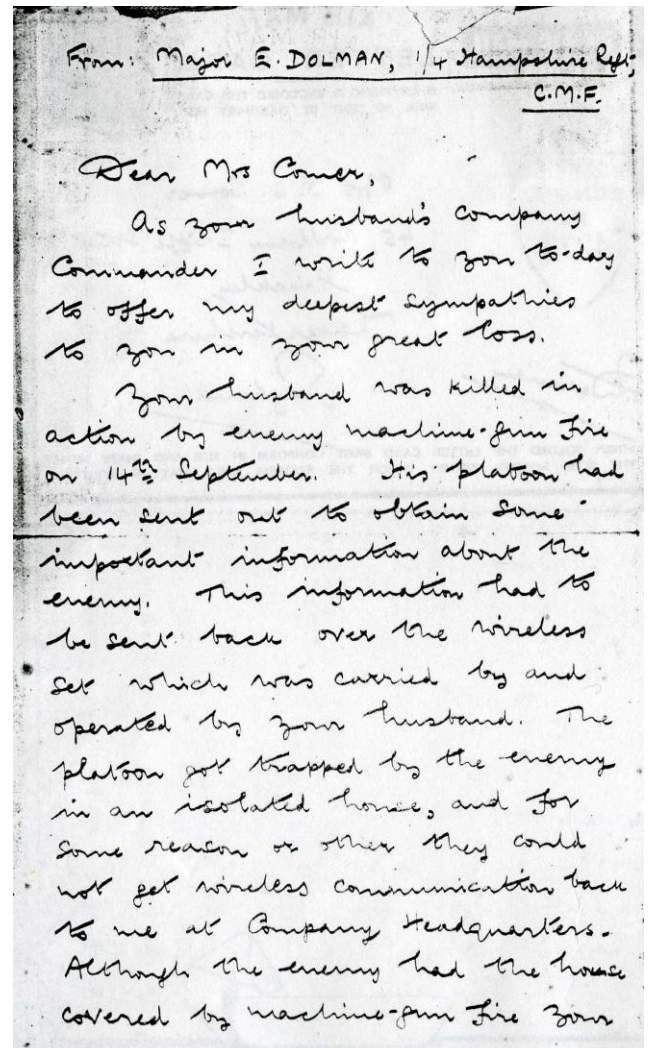 From: Major E. DOLMAN, 1/4 Hampshire Regt,
C.M.F.
Dear Mrs Comer,
As your husband's company
Commander I write to you to-day
to offer my deepest sympathies
to you in your great loss.
Your husband was killed in
action by enemy machine-gun fire
on 14th September. His platoon had
been sent out to obtain some
important information about the
enemy. This information had to
be sent back over the wireless
set which was carried by and
operated by your husband. The
platoon got trapped by the enemy
in an isolated house, and for
some reason or other they could
not get wireless communication back
to me at Company Headquarters.
Although the enemy had the house
covered by machine-gun fire your